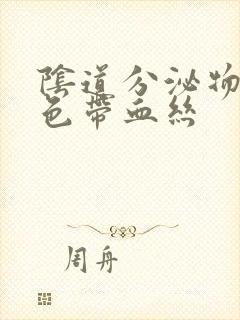 陰道分泌物
色帶血絲
周舟